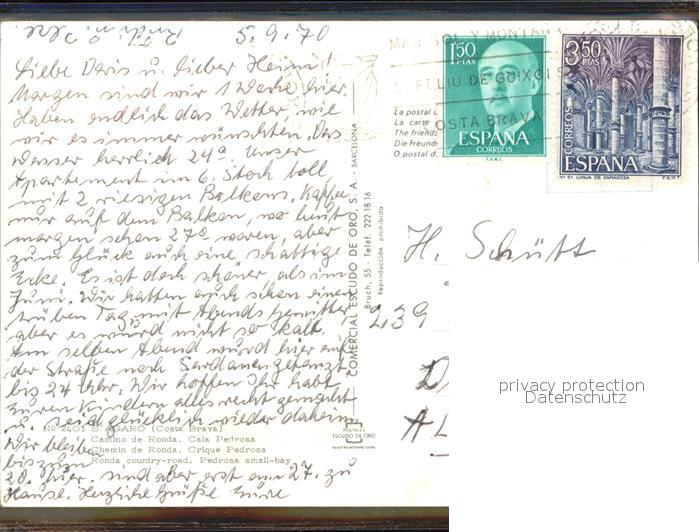 5.9.70
Liebe Doris u. lieber Heini
Morgen sind wir 1 Woche hier.
Haben endlich das Wetter, wie
wir es immer wünschten. Das
Wasser herrlich 24°. Unser
Apartement im 6. Stock toll,
mit 2 riesigen Balkons. Kaffee
nur auf dem Balkon, wo heut
morgen schon 27° waren, aber
zum Glück auch eine schattige
Ecke. Es ist doch schöner als im
Juni. Wir hatten auch schon einen
trüben Tag mit Abends Gewitter,
aber es wurd nicht so kalt.
Am selben Abend wurd hier auf
der Straße noch Sardanen getanzt
bis 24 Uhr. Wir hoffen Ihr habt
zuren Kindern alles recht gemacht
u. seid glücklich wieder daheim
Wir bleiben
bis zum
20. hier. sind aber erst am 27. zu
Hause. Herzliche Grüße Eure
Nº 2401 S'AGARO (Costa Brava)
Camino de Ronda. Cala Pedrosa
Chemin de Ronda. Crique Pedrosa
Ronda country-road. Pedrosa small-bay
POSTALES
ESCUDO DE ORO
COMERCIAL ESCUDO DE ORO, S. A. - BARCELONA
Bruch, 55 - Teléf. 222 18 16
Reproducción prohibida
La postal d
La carte
The friends
Die Freunds
O postal d
MAR SOL Y MONTAÑ
S. FELIU DE GUIXOLS
COSTA BRAVA
1,50
PTAS
ESPAÑA
CORREOS
F.N.M.T.
3,50
PTAS
CORREOS
ESPAÑA
Nº 61. LONJA DE ZARAGOZA
F.N.M.T.
H. Schütt
239
D
AL
privacy protection
Datenschutz